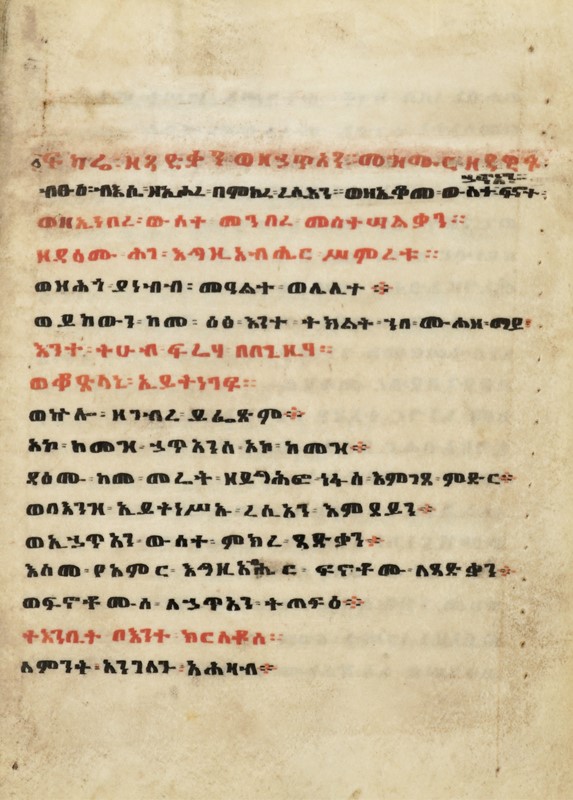 ፍካሬ፡ ዘጻድቃን፡ ወዘኃጥአን፡ መዝሙር፡ ዘዳዊት፡
ብፁዕ፡ ብእሲ፡ ዘኢሖረ፡ በምክረ፡ ረሲአን፡ ወዘኢቆመ፡ ውስተ፡ ፍኖተ፡ ኃጥአን፡
ወዘኢነበረ፡ ውስተ፡ መንበረ፡ መስተሣልቃን።
ዘዳዕሙ፡ ሕገ፡ እግዚአብሔር፡ ሥምረቱ።
ወዘሕጎ፡ ያነብብ፡ መዓልተ፡ ወሌሊተ።
ወይከውን፡ ከመ፡ ዕፅ፡ እንተ፡ ትክልት፡ ኀበ፡ ሙሐዘ፡ ማይ፡
እንተ፡ ትሁብ፡ ፍሬሃ፡ በበጊዜሃ።
ወቆጽላኒ፡ ኢይትነገፍ።
ወኵሎ፡ ዘገብረ፡ ይፌጽም።
አኮ፡ ከመዝ፡ ኃጥአንሰ፡ አኮ፡ ከመዝ።
ዳዕሙ፡ ከመ፡ መሬት፡ ዘይግሕፎ፡ ነፋስ፡ እምገጸ፡ ምድር።
ወበእንዝ፡ ኢይትነሥኡ፡ ረሲአን፡ እምደይን።
ወኢኃጥአን፡ ውስተ፡ ምክረ፡ ጻድቃን።
እስመ፡ ያአምር፡ እግዚአብሔር፡ ፍኖቶሙ፡ ለጻድቃን።
ወፍኖቶሙሰ፡ ለኃጥአን፡ ትጠፍዕ።
ትእንቢት፡ በእንተ፡ ክርስቶስ።
ለምንት፡ አንገለጉ፡ አሕዛብ።